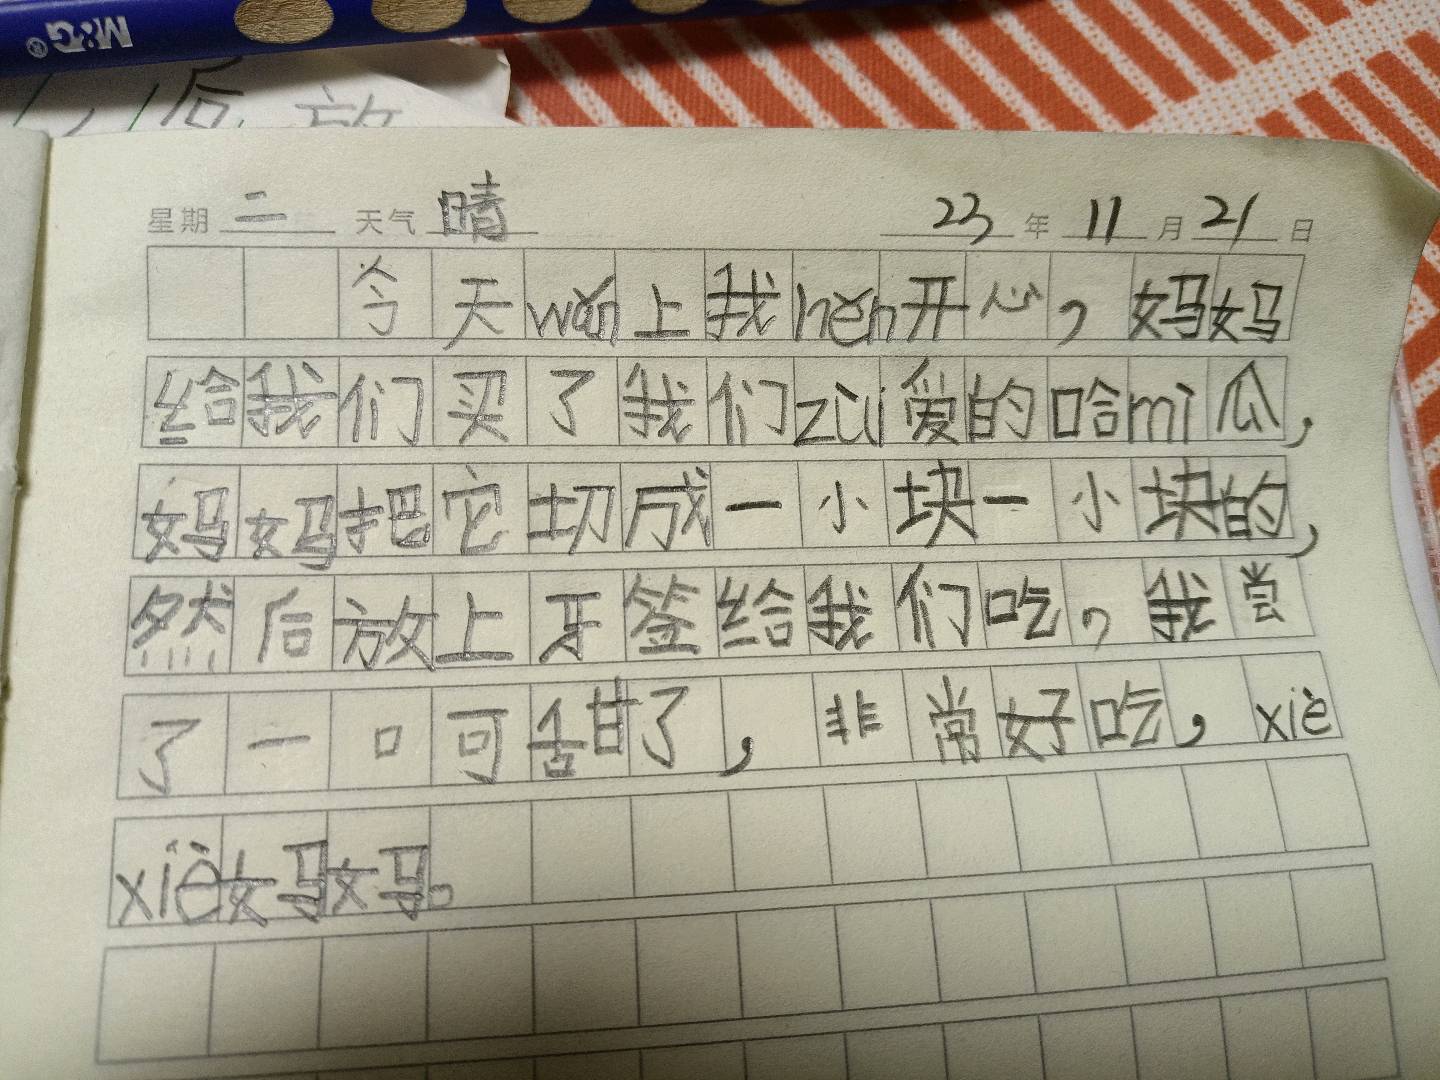 M&G
后 放
星期 二 天气 晴 23 年 11 月 21 日
今天wǎn上我hěn开心，妈妈
给我们买了我们zuì爱的哈mì瓜，
妈妈把它切成一小块一小块的，
然后放上牙签给我们吃，我尝
了一口可甜了，非常好吃，xiè
xiè妈妈。